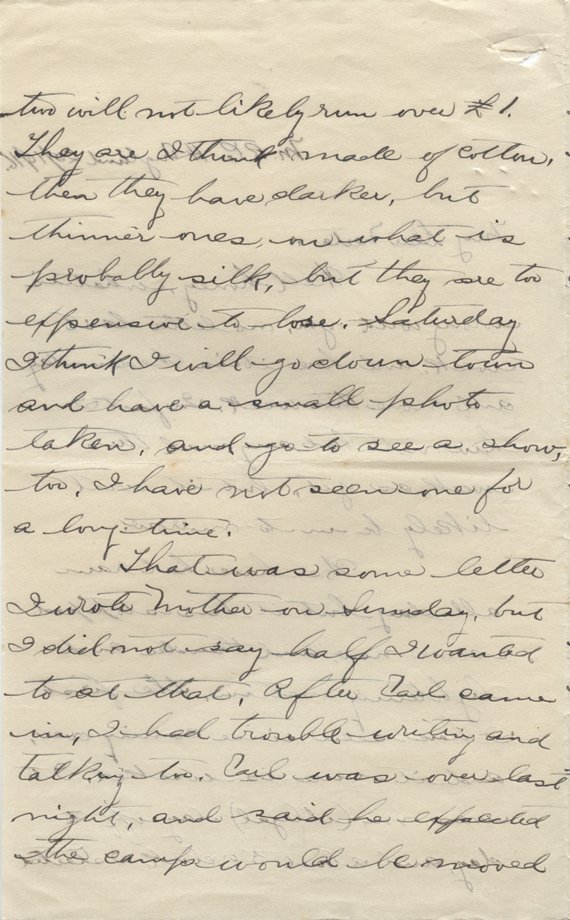 two will not likely run over £1.
They are I think made of cotton,
then they have darker, but
thinner ones, on what is
probally silk, but they are too
expensive to lose. Saturday
I think I will go down town
and have a small photo
taken, and go to see a show,
too, I have not seen one for
a long time.
That was some letter
I wrote Mother on Sunday, but
I did not say half I wanted
to at that, After Earl came
in, I had trouble writing and
talking too. Earl was over last
night, and said he expected
the camp would be moved